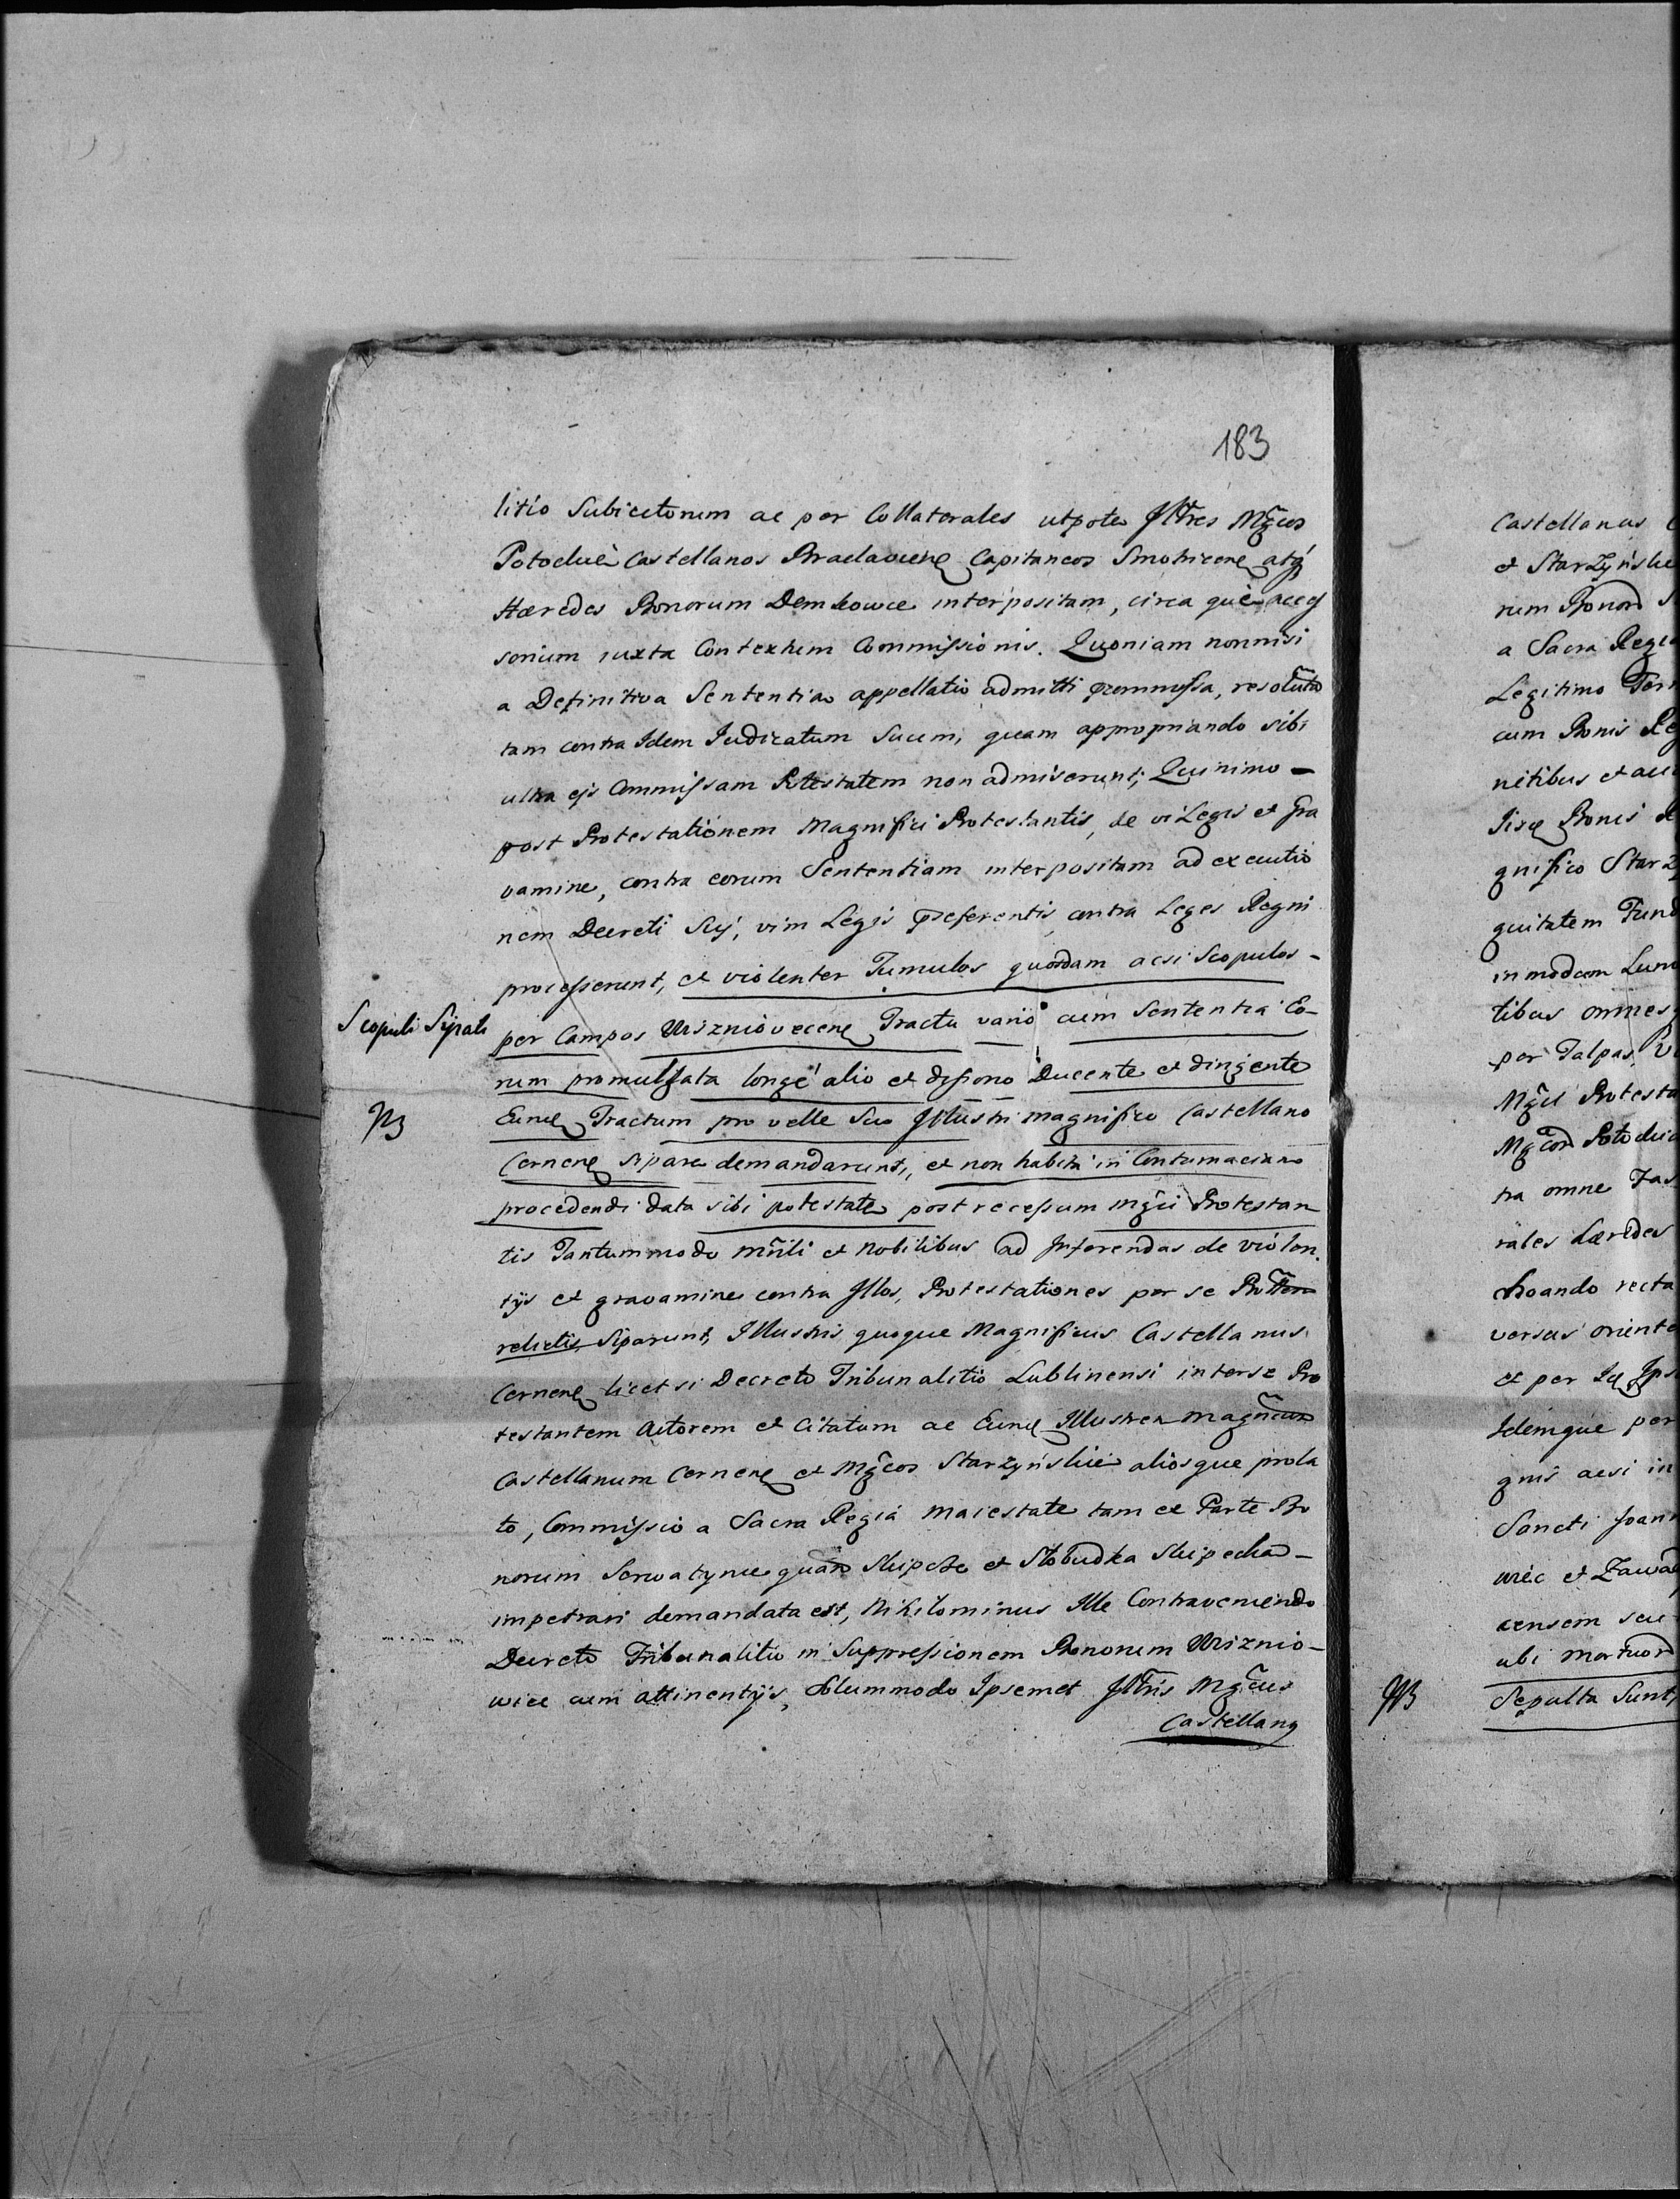 183
litio Subiectorum ac per Collaterales utpote Jllres Mgcos
Potockie Castellanos Braclaviens Capitaneos Smotricens atq
Hæredes Bonorum Demkowce interpositam, circa que acces
sorium iuxta Contextum Commissionis. Quoniam nonnisi
a Definitiva Sententia appellatio admitti præmmissa, resoluta
tam contra Idem Iudicatum Suum, quam appropriando sibi
ultra ejs Commissam Potestatem non admiserunt; Quinimo –
post Protestationem Magnifici Protestantis, de vi Legis et Gra
vamine, contra eorum Sententiam interpositam ad executio
nem Decreti Sui, vim Legis præferentis, contra Leges Regni
processerunt, et violenter Tumulos quosdam acsi Scopulos –
Scopuli Sipati
per Campos Wizniovecens Tractu vario cum Sententia Eo-
rum promulgata longe alio et dissono Ducente et dirigente
NB
Eund Tractum pro velle Suo Jllustri magnifico Castellano
Cernens sipare demandarunt, et non habita in Contumaciam
procedendi data sibi potestate post recessum mgci Protestan
tis Tantummodo mrili et Nobilibus ad Inferendas de violen.
tijs et gravamine contra Jllos, Protestationes per se
relictis Siparunt, Jllustris quoque Magnificus Castellanus
Cernens licet si Decreto Tribunalitio Lublinensi inter se Pro
testantem Actorem et Citatum ac Eund Illustrem magnicum
Castellanum Cernens et Mgcos Starzyńskie aliosque prola
to, Commissio a Sacra Regia Maiestate tam ex Parte Bo
norum Serwatynie quam Skipcze et Slobudka Skipecka –
impetrari demandata est, Nihilominus Ille Contraveniendo
Decreto Tribunalitio in Suppressionem Bonorum Wiznio-
wiec cum attinentijs, Solummodo Ipsemet Jllris Mgcus
Castellang
Castellanus
et Starzyńskie
rum Bonor
a Sacra Regia
Legitimo
cum Bonis
nitibus et
Bonis
gnifico
quitatem Fund
in modum
tibus omnes
per Talpas
Mgci Protesta
Mgcor Potockie
tra omne Fas
rales Hæredes
choando recta
versus oriente
et per
Idemque per
gnis acsi in
Sancti Joann
wiec et
censem seu
ubi Mortuor
NB
Sepulta Sunt,